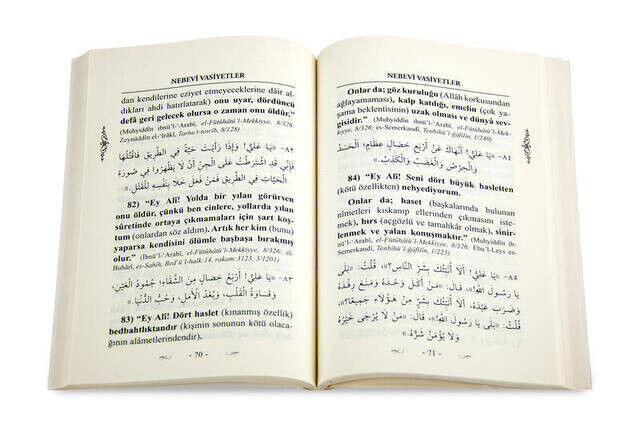 NEBEVÎ VASİYETLER
dan kendilerine eziyet etmeyeceklerine dâir al-
dıkları ahdi hatırlatarak) onu uyar, dördüncü
defâ geri gelecek olursa o zaman onu öldür.”
(Muhyiddîn ibnü'l-‘Arabî, el-Fütûhâtü'l-Mekkiyye, 8/326;
Zeynüddîn el-‘Irâkî, Tarhu't-tesrîb, 8/128)
٨٢- «يَا عَلِيُّ! وَإِذَا رَأَيْتَ حَيَّةً فِي الطَّرِيقِ فَاقْتُلْهَا
فَإِنِّي قَدِ اشْتَرَطْتُ عَلَى الْجِنِّ أَنْ لَا يَظْهَرُوا فِي صُورَةِ
الْحَيَّاتِ فِي الطَّرِيقِ فَمَنْ فَعَلَ خَلَا بِنَفْسِهِ لِلْقَتْلِ.»
82) “Ey Ali! Yolda bir yılan görürsen
onu öldür, çünkü ben cinlere, yollarda yılan
sûretinde ortaya çıkmamaları için şart koş-
tum (onlardan söz aldım). Artık her kim (bunu)
yaparsa kendisini ölümle başbaşa bırakmış
olur.” (İbnü'l-‘Arabî, el-Fütûhâtü'l-Mekkiyye, 8/326; el-
Buhârî, es-Sahîh, Bed'ü'l-halk:14, rakam:3123, 3/1201)
٨٣- «يَا عَلِيُّ! أَرْبَعُ خِصَالٍ مِنَ الشَّقَاءِ: جُمُودُ الْعَيْنِ،
وَقَسَاوَةُ الْقَلْبِ، وَبُعْدُ الْأَمَلِ، وَحُبُّ الدُّنْيَا.»
83) “Ey Ali! Dört haslet (kınanmış özellik)
bedbahtlıktandır (kişinin sonunun kötü olaca-
ğının alâmetlerindendir).
- 70 -
NEBEVÎ VASİYETLER
Onlar da; göz kuruluğu (Allâh korkusundan
ağlayamaması), kalp katılığı, emelin (çok ya-
şama beklentisinin) uzak olması ve dünyâ sev-
gisidir.” (Muhyiddîn ibnü'l-‘Arabî, el-Fütûhâtü'l-Mek-
kiyye, 8/326; es-Semerkandî, Tenbîhü'l-ğâfilîn, 1/240)
٨٤- «يَا عَلِيُّ! أَنْهَاكَ عَنْ أَرْبَعِ خِصَالٍ عِظَامٍ: الْحَسَدِ
وَالْحِرْصِ وَالْغَضَبِ وَالْكَذِبِ.»
84) “Ey Ali! Seni dört büyük hasletten
(kötü özellikten) nehyediyorum.
Onlar da; haset (başkalarında bulunan
nîmetleri kıskanıp ellerinden çıkmasını iste-
mek), hırs (açgözlü ve tamahkâr olmak), sinir-
lenmek ve yalan konuşmaktır.” (Muhyiddîn ib-
nü'l-‘Arabî, el-Fütûhâtü'l-Mekkiyye, 8/326; Ebu'l-Leys es-
Semerkandî, Tenbîhü'l-ğâfilîn, 1/225)
٨٥- «يَا عَلِيُّ! أَلَا أُنَبِّئُكَ بِشَرِّ النَّاسِ؟»، قُلْتُ: «بَلَى
يَا رَسُولَ اللهِ!»، قَالَ: «مَنْ أَكَلَ وَحْدَهُ وَمَنَعَ رِفْدَهُ
وَضَرَبَ عَبْدَهُ، أَلَا أُنَبِّئُكَ بِشَرٍّ مِنْ هَؤُلَاءِ جَمِيعًا؟»،
قُلْتُ: «بَلَى يَا رَسُولَ اللهِ!»، قَالَ: «مَنْ لَا يُرْجَى خَيْرُهُ
وَلَا يُؤْمَنُ شَرُّهُ.»
- 71 -